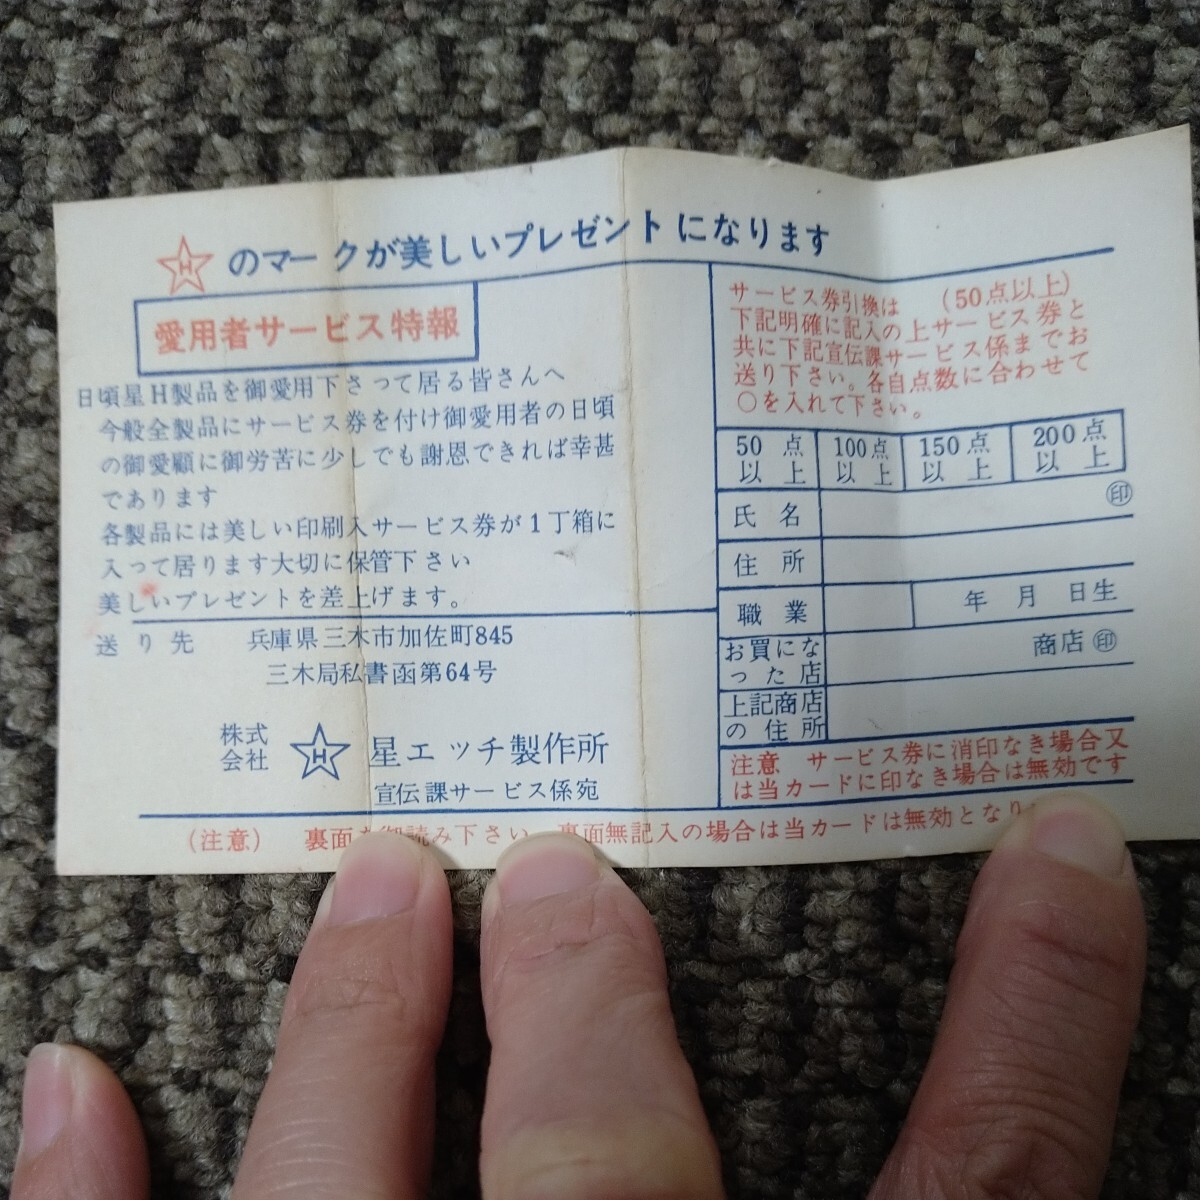 Hのマークが美しいプレゼントになります
愛用者サービス特報
日頃星H製品を御愛用下さって居る皆さんへ
今般全製品にサービス券を付け御愛用者の日頃
の御愛顧に御労苦に少しでも謝恩できれば幸甚
であります
各製品には美しい印刷入サービス券が1丁箱に
入って居ります大切に保管下さい
美しいプレゼントを差上げます。
送り先 兵庫県三木市加佐町845
三木局私書函第64号
株式会社 H 星エッチ製作所
宣伝課サービス係宛
サービス券引換は (50点以上)
下記明確に記入の上サービス券と
共に下記宣伝課サービス係までお
送り下さい。各自点数に合わせて
○を入れて下さい。
50点以上 100点以上 150点以上 200点以上
氏名 ㊞
住所
職業 年 月 日生
お買になった店 商店㊞
上記商店の住所
注意 サービス券に消印なき場合又
は当カードに印なき場合は無効です
(注意) 裏面を御読み下さい。裏面無記入の場合は当カードは無効となり